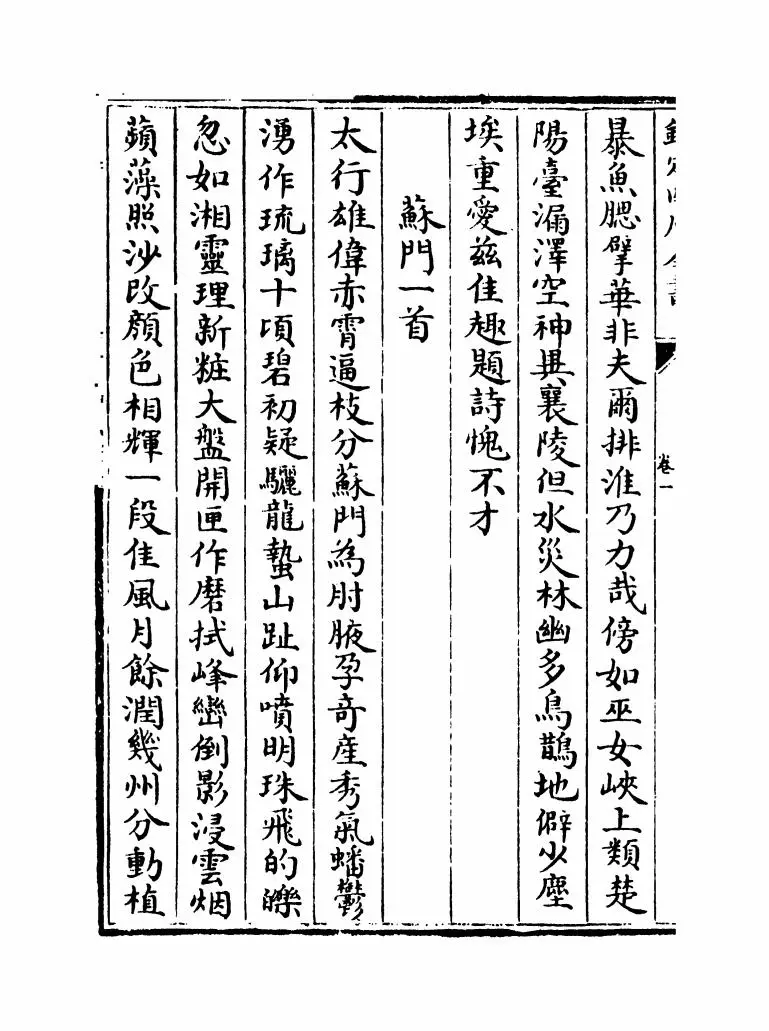 欽定四庫全書
卷一
暴魚腮擘華非夫爾排淮乃力哉傍如巫女峽上類楚
陽臺漏澤空神異襄陵但水災林幽多鳥鵲地僻少塵
埃重愛兹佳趣題詩愧不才
蘇門一首
太行雄偉赤霄逼枝分蘇門為肘腋孕奇産秀氣蟠鬱
湧作琉璃十頃碧初疑驪龍蟄山趾仰噴明珠飛的皪
忽如湘靈理新粧大盤開匣作磨拭峰巒倒影浸雲烟
蘋藻照沙改顔色相輝一段佳風月餘潤幾州分動植